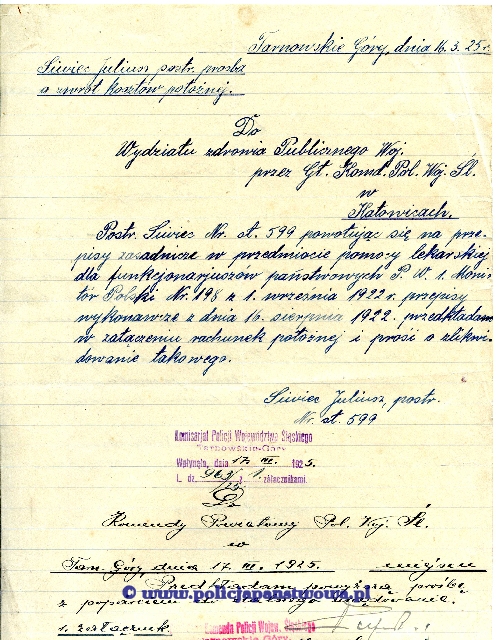 Tarnowskie Góry, dnia 16.3.25r.
Siwiec Juljusz postr. prośba
o zwrot kosztów położnej.
Do
Wydziału zdrowia Publicznego Woj.
przez Gł. Komd. Pol. Woj. Śl.
w
Katowicach.
Postr. Siwiec Nr. st. 599 powołując się na prze-
pisy zasadnicze w przedmiocie pomocy lekarskiej
dla funkcjonarjuszów państwowych P. W. 1. Moni-
tór Polski Nr. 198 z 1. września 1922 r. przepisy
wykonawcze z dnia 16. sierpnia 1922. przedkładam
w załączeniu rachunek położnej i prosi o zlikwi-
dowanie takowego.
Siwiec Juljusz, postr.
Nr. st. 599
Komisarjat Policji Województwa Śląskiego
Tarnowskie-Góry
Wpłynęło, dnia 17. III. 1925.
L. dz. 963/25 z 1. załącznikami.
Do
Komendy Powiatowej Pol. Woj. Śl.
w
Tarn. Góry, dnia 17. III. 1925. miejscu
Przedkładam powyższą prośbę
z poparciem do
© www.policjapanstwowa.pl
1. załącznik.
Komenda Policji Wojew. Śląskiego